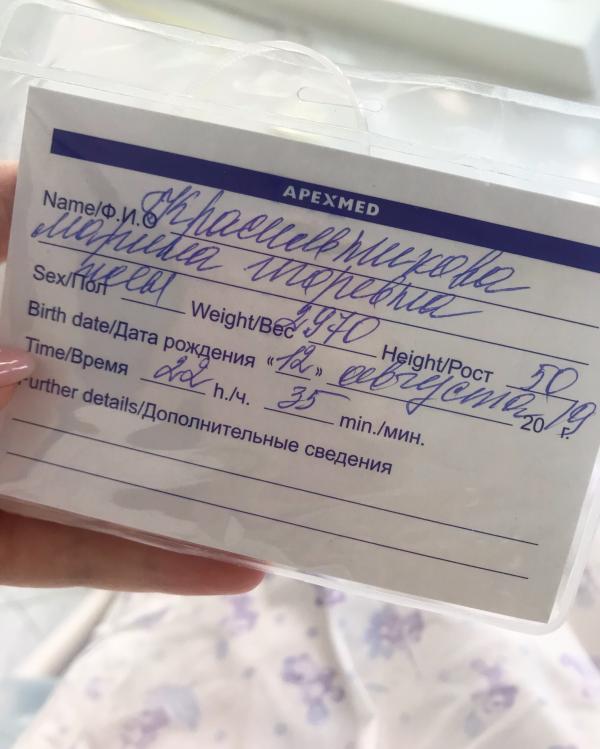 APEXMED
Name/Ф.И.О Красильникова
Марина Игоревна
Sex/Пол жен Weight/Вес 2970 Height/Рост 50
Birth date/Дата рождения «12» августа 2019 г.
Time/Время 22 h./ч. 35 min./мин.
Further details/Дополнительные сведения